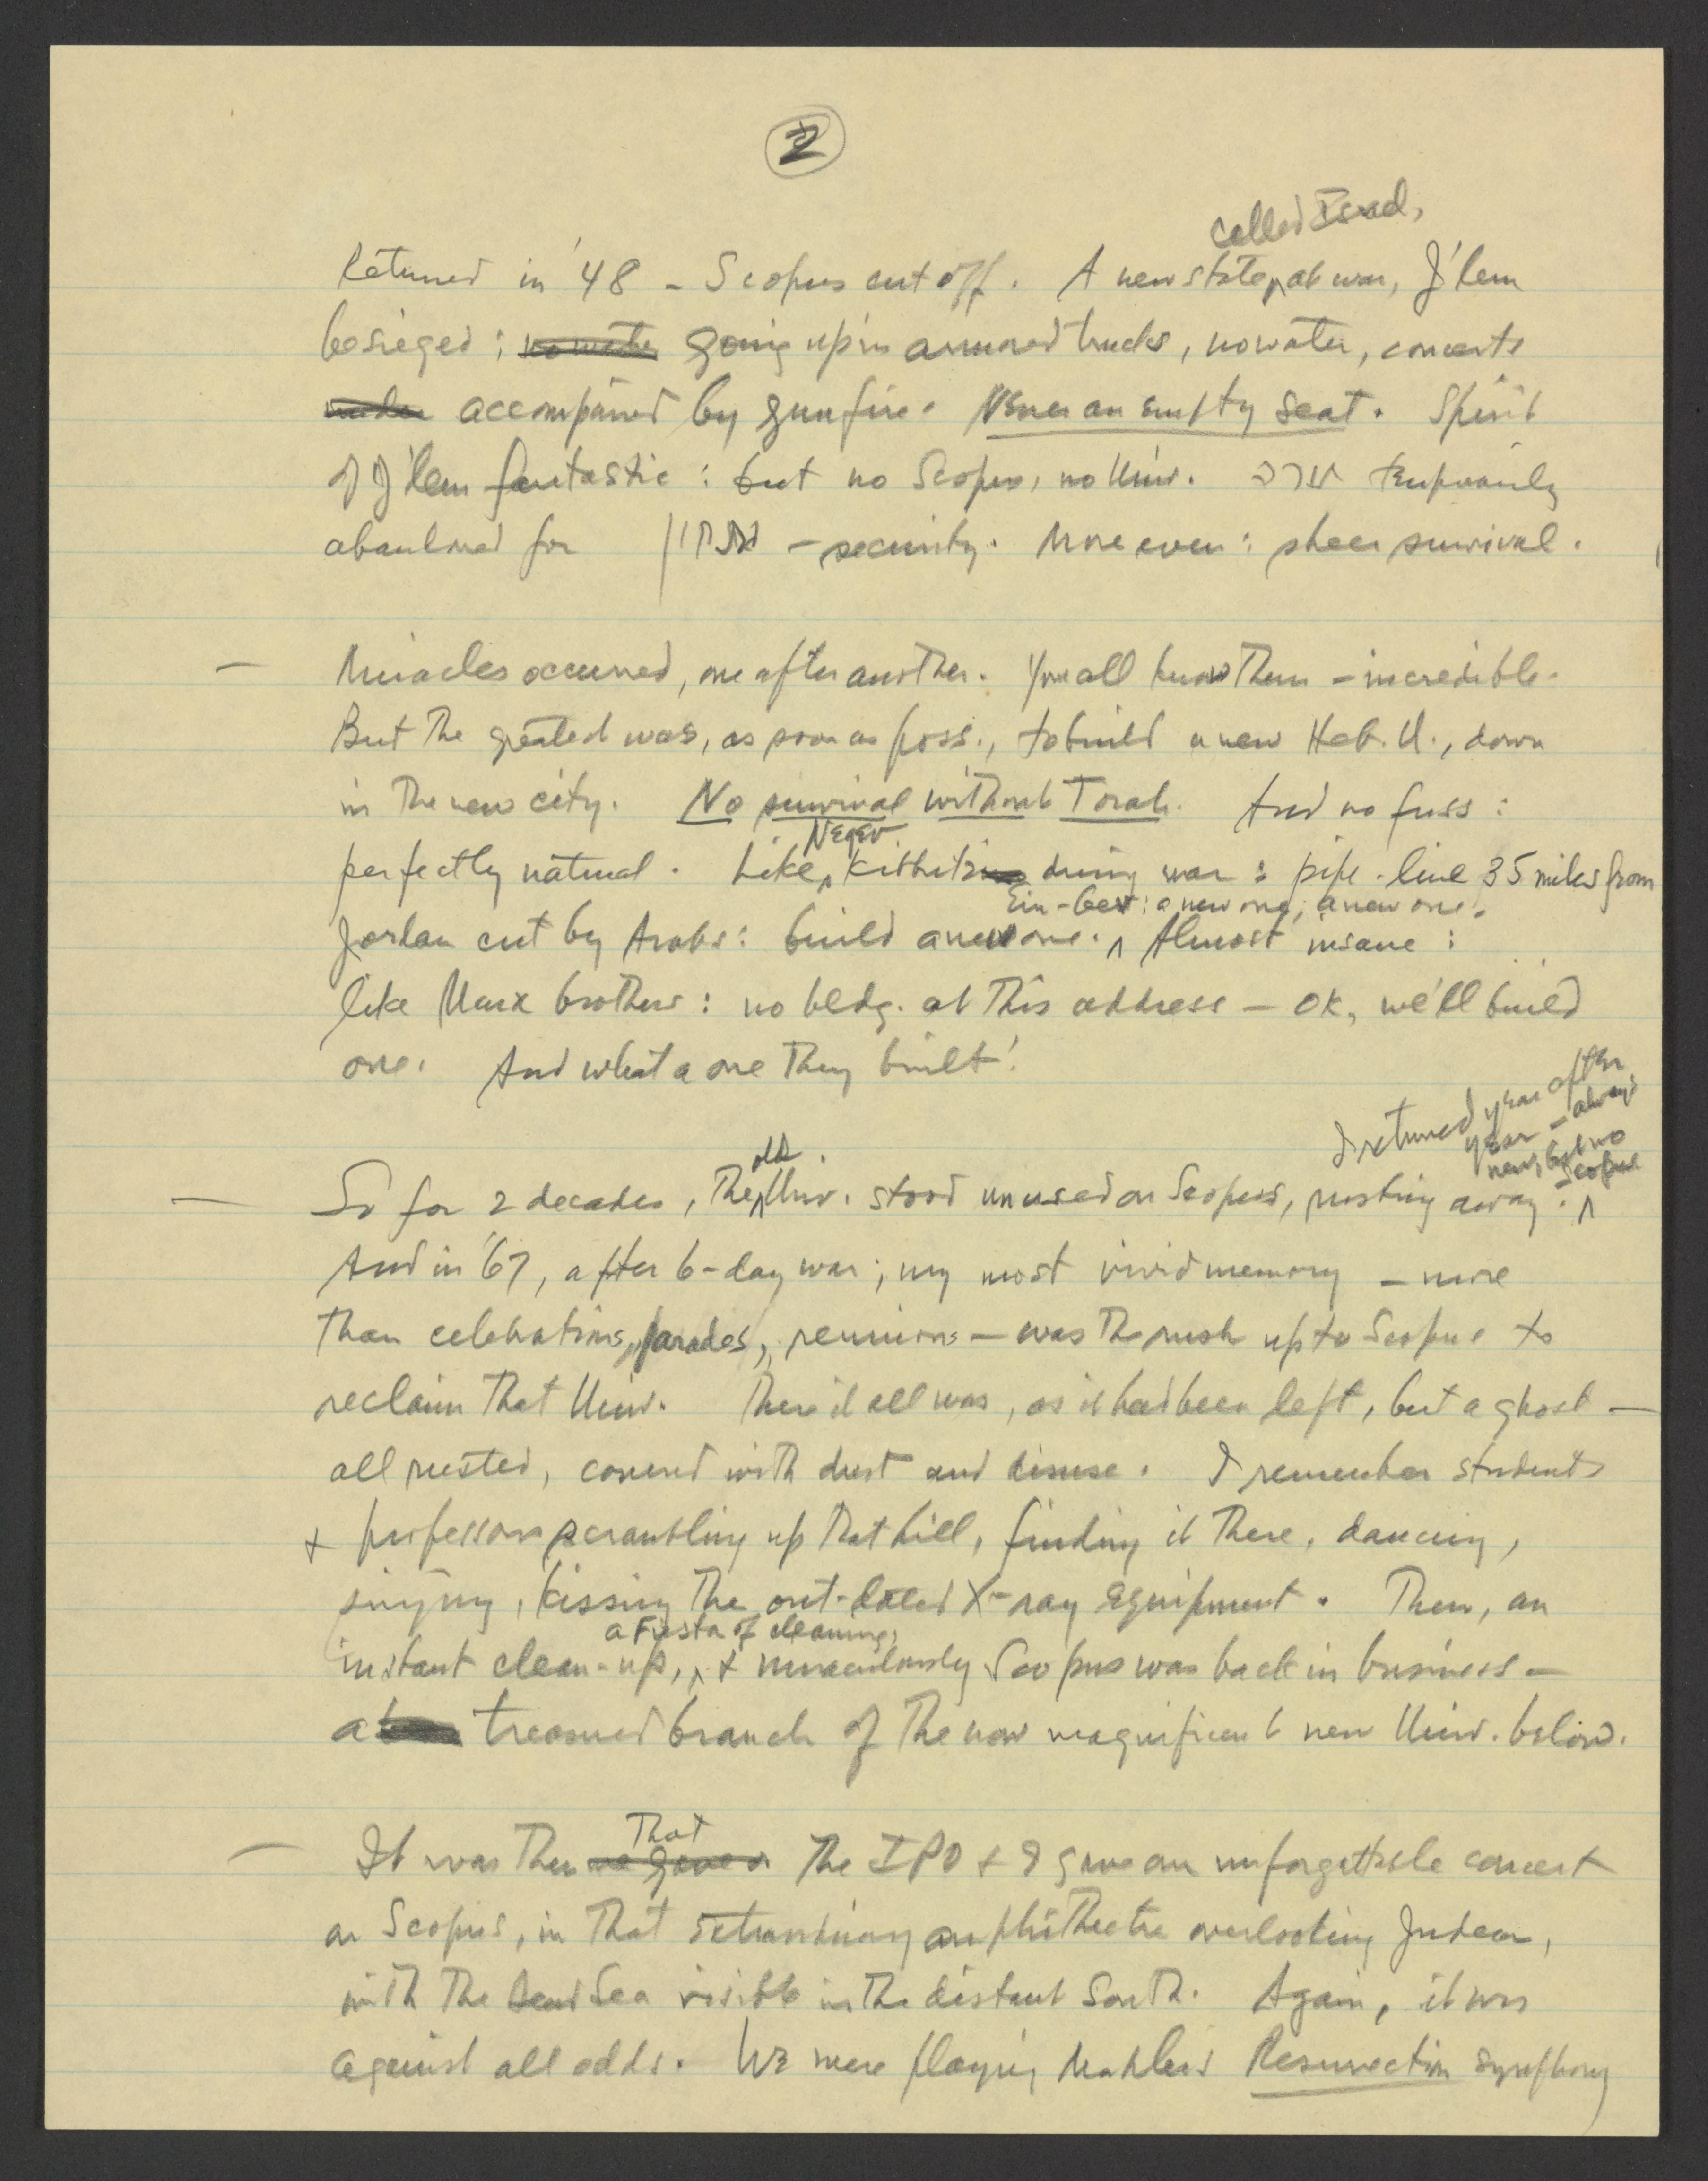 2
called Israel,
Returned in '48 – Scopus cut off. A new state, at war, J'lem
besieged: going up in armored trucks, no water, concerts
accompanied by gunfire. Never an empty seat. Spirit
of J'lem fantastic: but no Scopus, no Univ. temporarily
abandoned for – security. More even: sheer survival.
— Miracles occurred, one after another. You all know them – incredible.
But the greatest was, as soon as poss., to build a new Heb. U., down
in the new city. No survival without Torah. And no fuss:
Negev
perfectly natural. Like kibbutz during war: pipe-line 35 miles from
Ein-Gev: a new one, a new one.
Jordan cut by Arabs: build a new one. Almost insane:
like Marx brothers: no bldg. at this address – OK, we'll build
one. And what a one they built!
I returned year after
year – always
new, but no
Scopus
old
— So for 2 decades, the Univ. stood unused on Scopus, rusting away.
And in '67, after 6-day war; my most vivid memory – more
than celebrations, parades, reunions – was the rush up to Scopus to
reclaim that Univ. There it all was, as it had been left, but a ghost –
all rusted, covered with dust and disuse. I remember students
+ professors scrambling up that hill, finding it there, dancing,
singing, kissing the out-dated X-ray equipment. Then, an
a Fiesta of cleaning,
instant clean-up, + miraculously Scopus was back in business –
a treasured branch of the now magnificent new Univ. below.
That
— It was then the IPO + I gave an unforgettable concert
on Scopus, in that extraordinary amphitheatre overlooking Judea,
with the Dead Sea visible in the distant South. Again, it was
against all odds. We were playing Mahler's Resurrection symphony